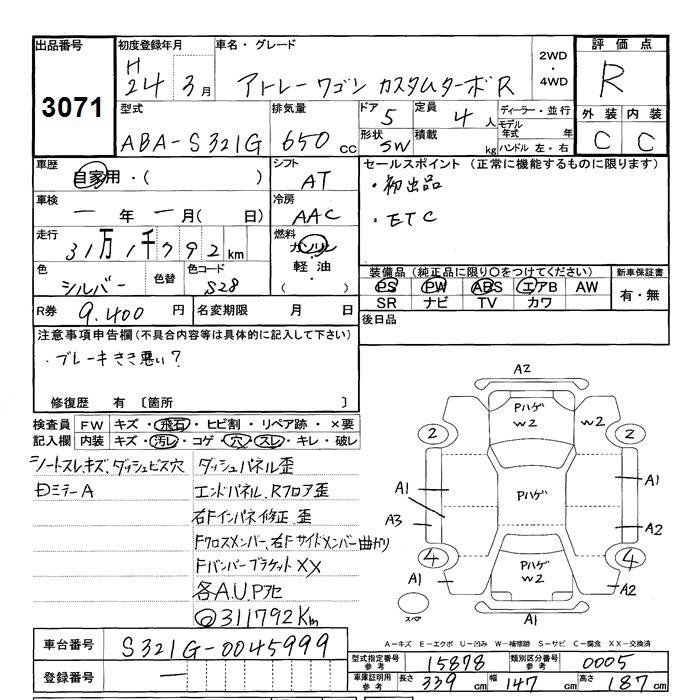 出品番号
3071
初度登録年月
H 24 3月
車名・グレード
アトレーワゴン カスタムターボR
2WD
・
4WD
評価点
R
外装 内装
C C
型式
ABA-S321G
排気量
650 cc
ドア
5
定員
4 人
形状
SW
積載
kg
ディーラー・並行
モデル年式 年
ハンドル 左・右
車歴
自家用・( )
シフト
AT
車検
一年 一月( 日)
冷房
AAC
走行
31万1千792km
燃料
ガソリン
軽油・
( )
色
シルバー
色替
色コード
S28
R券 9,400 円
名変期限 月 日
セールスポイント(正常に機能するものに限ります)
・初出品
・ETC
装備品(純正品に限り○をつけてください)
PS PW ABS エアB AW
SR ナビ TV カワ
新車保証書
有・無
後日品
注意事項申告欄(不具合内容等は具体的に記入して下さい)
・ブレーキきき悪い?
修復歴 有 〔箇所 〕
検査員記入欄
FW キズ・飛石・ヒビ割・リペア跡・×要
内装 キズ・汚レ・コゲ・穴・スレ・キレ・破レ
シートスレ、キズ、ダッシュビス穴
DミラーA
ダッシュパネル歪
エンドパネル、Rフロア歪
右Fインパネ修正、歪
Fクロスメンバー、右Fサイドメンバー曲がり
Fバンパーブラケット××
各A.U.Pアセ
◎311792Km
A2
Pハゲ
W2
W2
2
2
A1
A3
Pハゲ
A1
A2
4
4
A1
Pハゲ
W2
A2
A1
スペア
A-キズ E-エクボ U-凹み W-補修跡 S-サビ C-腐食 XX-交換済
車台番号
S321G-0045999
登録番号
一
型式指定番号 参考
15878
類別区分番号 参考
0005
車庫証明用 参考
長さ 339 cm 幅 147 cm 高さ 187 cm